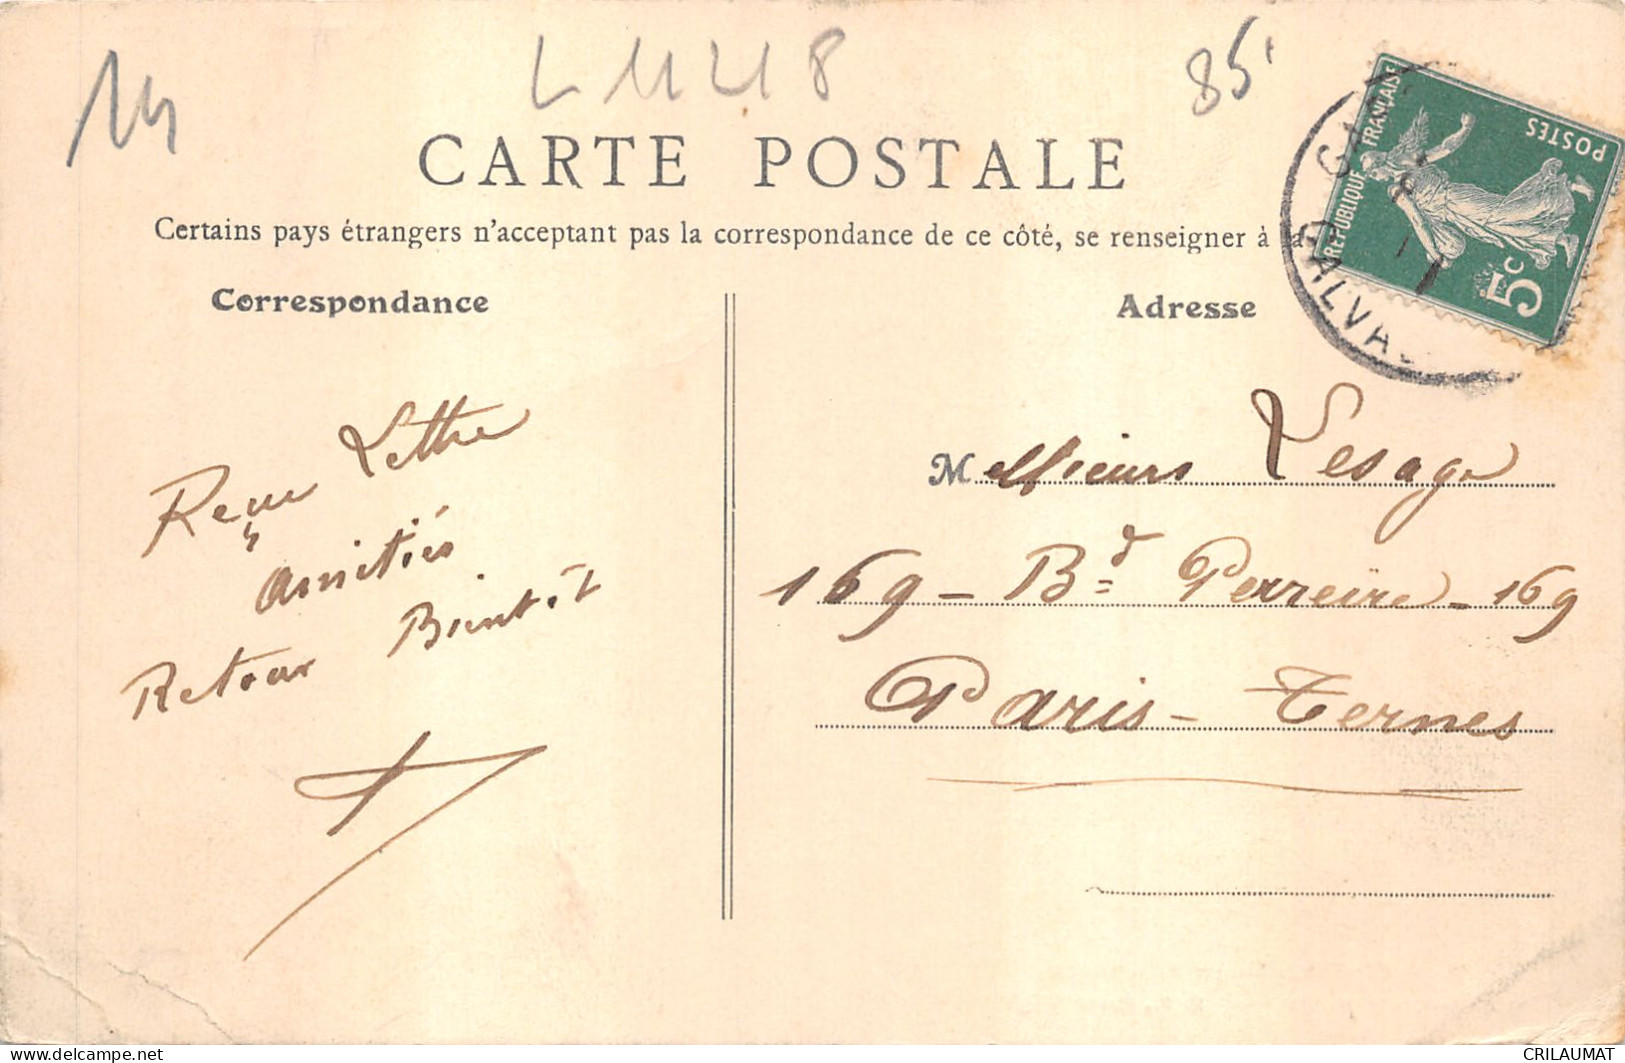 14
L 1148
85
CARTE POSTALE
Certains pays étrangers n'acceptant pas la correspondance de ce côté, se renseigner à la
Correspondance
Adresse
RÉPUBLIQUE FRANÇAISE
POSTES
5c
CALVA
Reçu Lettre
amitiés
Retour Bientôt
Messieurs Lesage
169 - Bd Perreire - 169
Paris - Ternes
CRILAUMAT